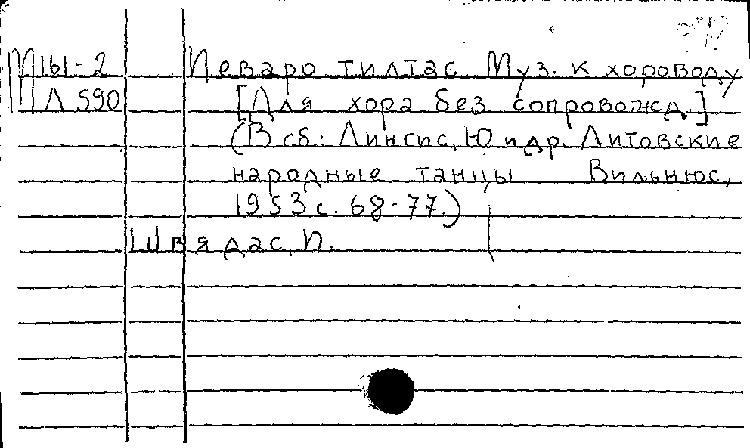 М161-2 Неваро тилтас. Муз. к хороводу
Л 590 [Для хора без сопровожд.]
(В сб: Лингис, Ю и др. Литовские
народные танцы Вильнюс,
1953 с. 68-77.)
Швядас, П.